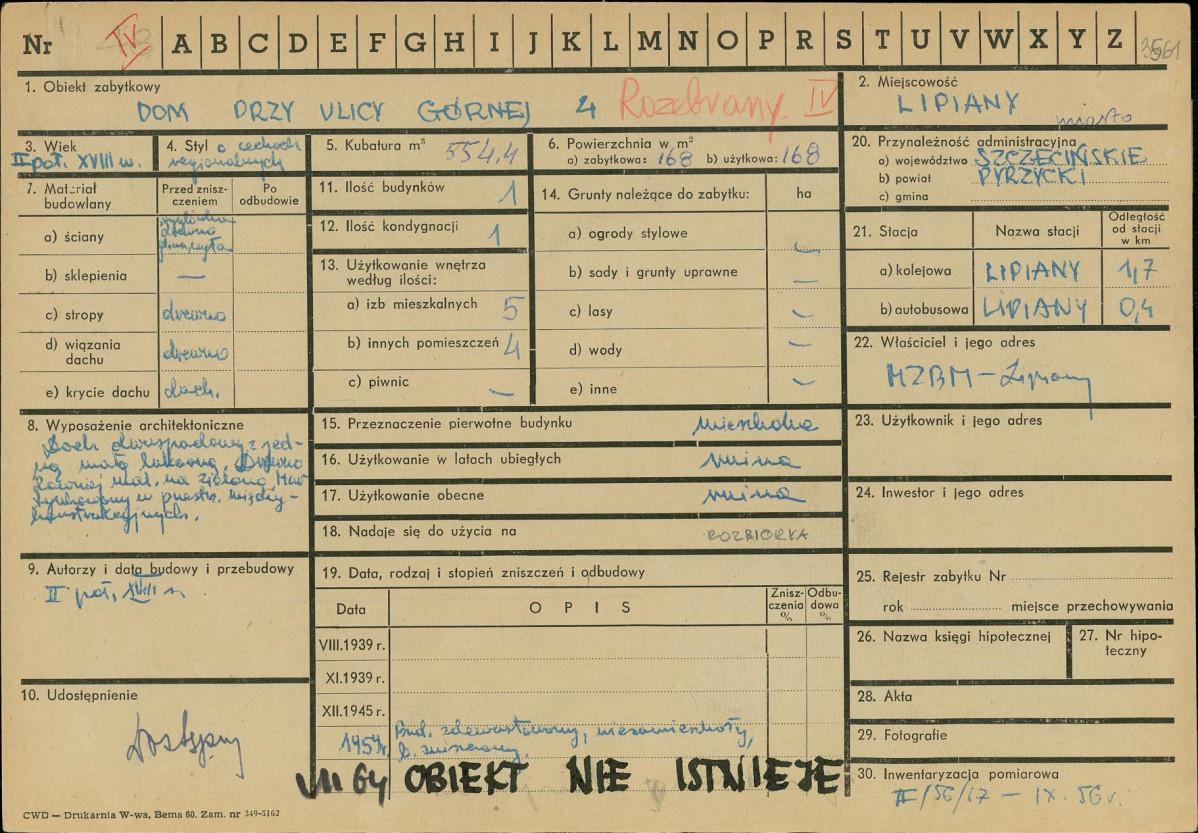 Nr IV A B C D E F G H I J K L M N O P R S T U V W X Y Z
1. Obiekt zabytkowy
DOM PRZY ULICY GÓRNEJ 4 Rozebrany IV
2. Miejscowość
LIPIANY
miasto
3. Wiek
II poł. XVIII w.
4. Styl o cechach
regionalnych
5. Kubatura m³ 554,4
6. Powierzchnia w m²
a) zabytkowa: 168 b) użytkowa: 168
20. Przynależność administracyjna
a) województwo SZCZECIŃSKIE
b) powiat PYRZYCKI
c) gmina
7. Materiał budowlany
Przed zniszczeniem
Po odbudowie
a) ściany
b) sklepienia —
c) stropy drewno
d) wiązania dachu drewno
e) krycie dachu dach.
11. Ilość budynków 1
12. Ilość kondygnacji 1
13. Użytkowanie wnętrza
według ilości:
a) izb mieszkalnych 5
b) innych pomieszczeń 4
c) piwnic —
14. Grunty należące do zabytku: ha
a) ogrody stylowe —
b) sady i grunty uprawne —
c) lasy —
d) wody —
e) inne —
21. Stacja Nazwa stacji Odległość
od stacji
w km
a) kolejowa LIPIANY 1,7
b) autobusowa LIPIANY 0,4
22. Właściciel i jego adres
MZBM – Lipiany
8. Wyposażenie architektoniczne
Dach dwuspadowy z jed-
ną małą lukarną. Drewno
mal. na zielono
w przestrz. między-
konstrukcyjnych.
15. Przeznaczenie pierwotne budynku mieszkalne
16. Użytkowanie w latach ubiegłych ruina
17. Użytkowanie obecne ruina
18. Nadaje się do użycia na ROZBIÓRKA
23. Użytkownik i jego adres
24. Inwestor i jego adres
9. Autorzy i data budowy i przebudowy
II poł. XVIII w.
19. Data, rodzaj i stopień zniszczeń i odbudowy
Data OPIS Znisz-
czenia
% Odbu-
dowa
%
VIII.1939 r.
XI.1939 r.
XII.1945 r.
1959r. Bud. zdewastowany, niezamieszkały,
b. zniszczony.
VII 64 OBIEKT NIE ISTNIEJE
25. Rejestr zabytku Nr
rok miejsce przechowywania
26. Nazwa księgi hipotecznej
27. Nr hipo-
teczny
28. Akta
29. Fotografie
30. Inwentaryzacja pomiarowa
II/56/17 – IX. 56 r.
10. Udostępnienie
Dostępny
CWD — Drukarnia W-wa, Bema 60. Zam. nr 349-5162